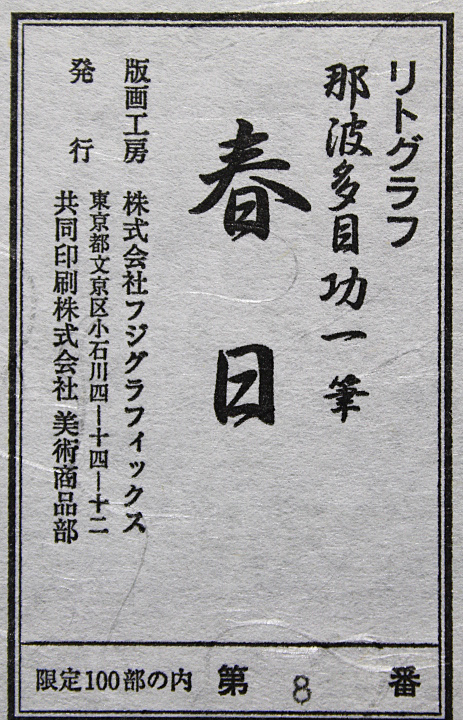 リトグラフ
那波多目功一筆
春日
版画工房 株式会社フジグラフィックス
東京都文京区小石川四ー十四ー十二
発行 共同印刷株式会社 美術商品部
限定100部の内 第 8 番